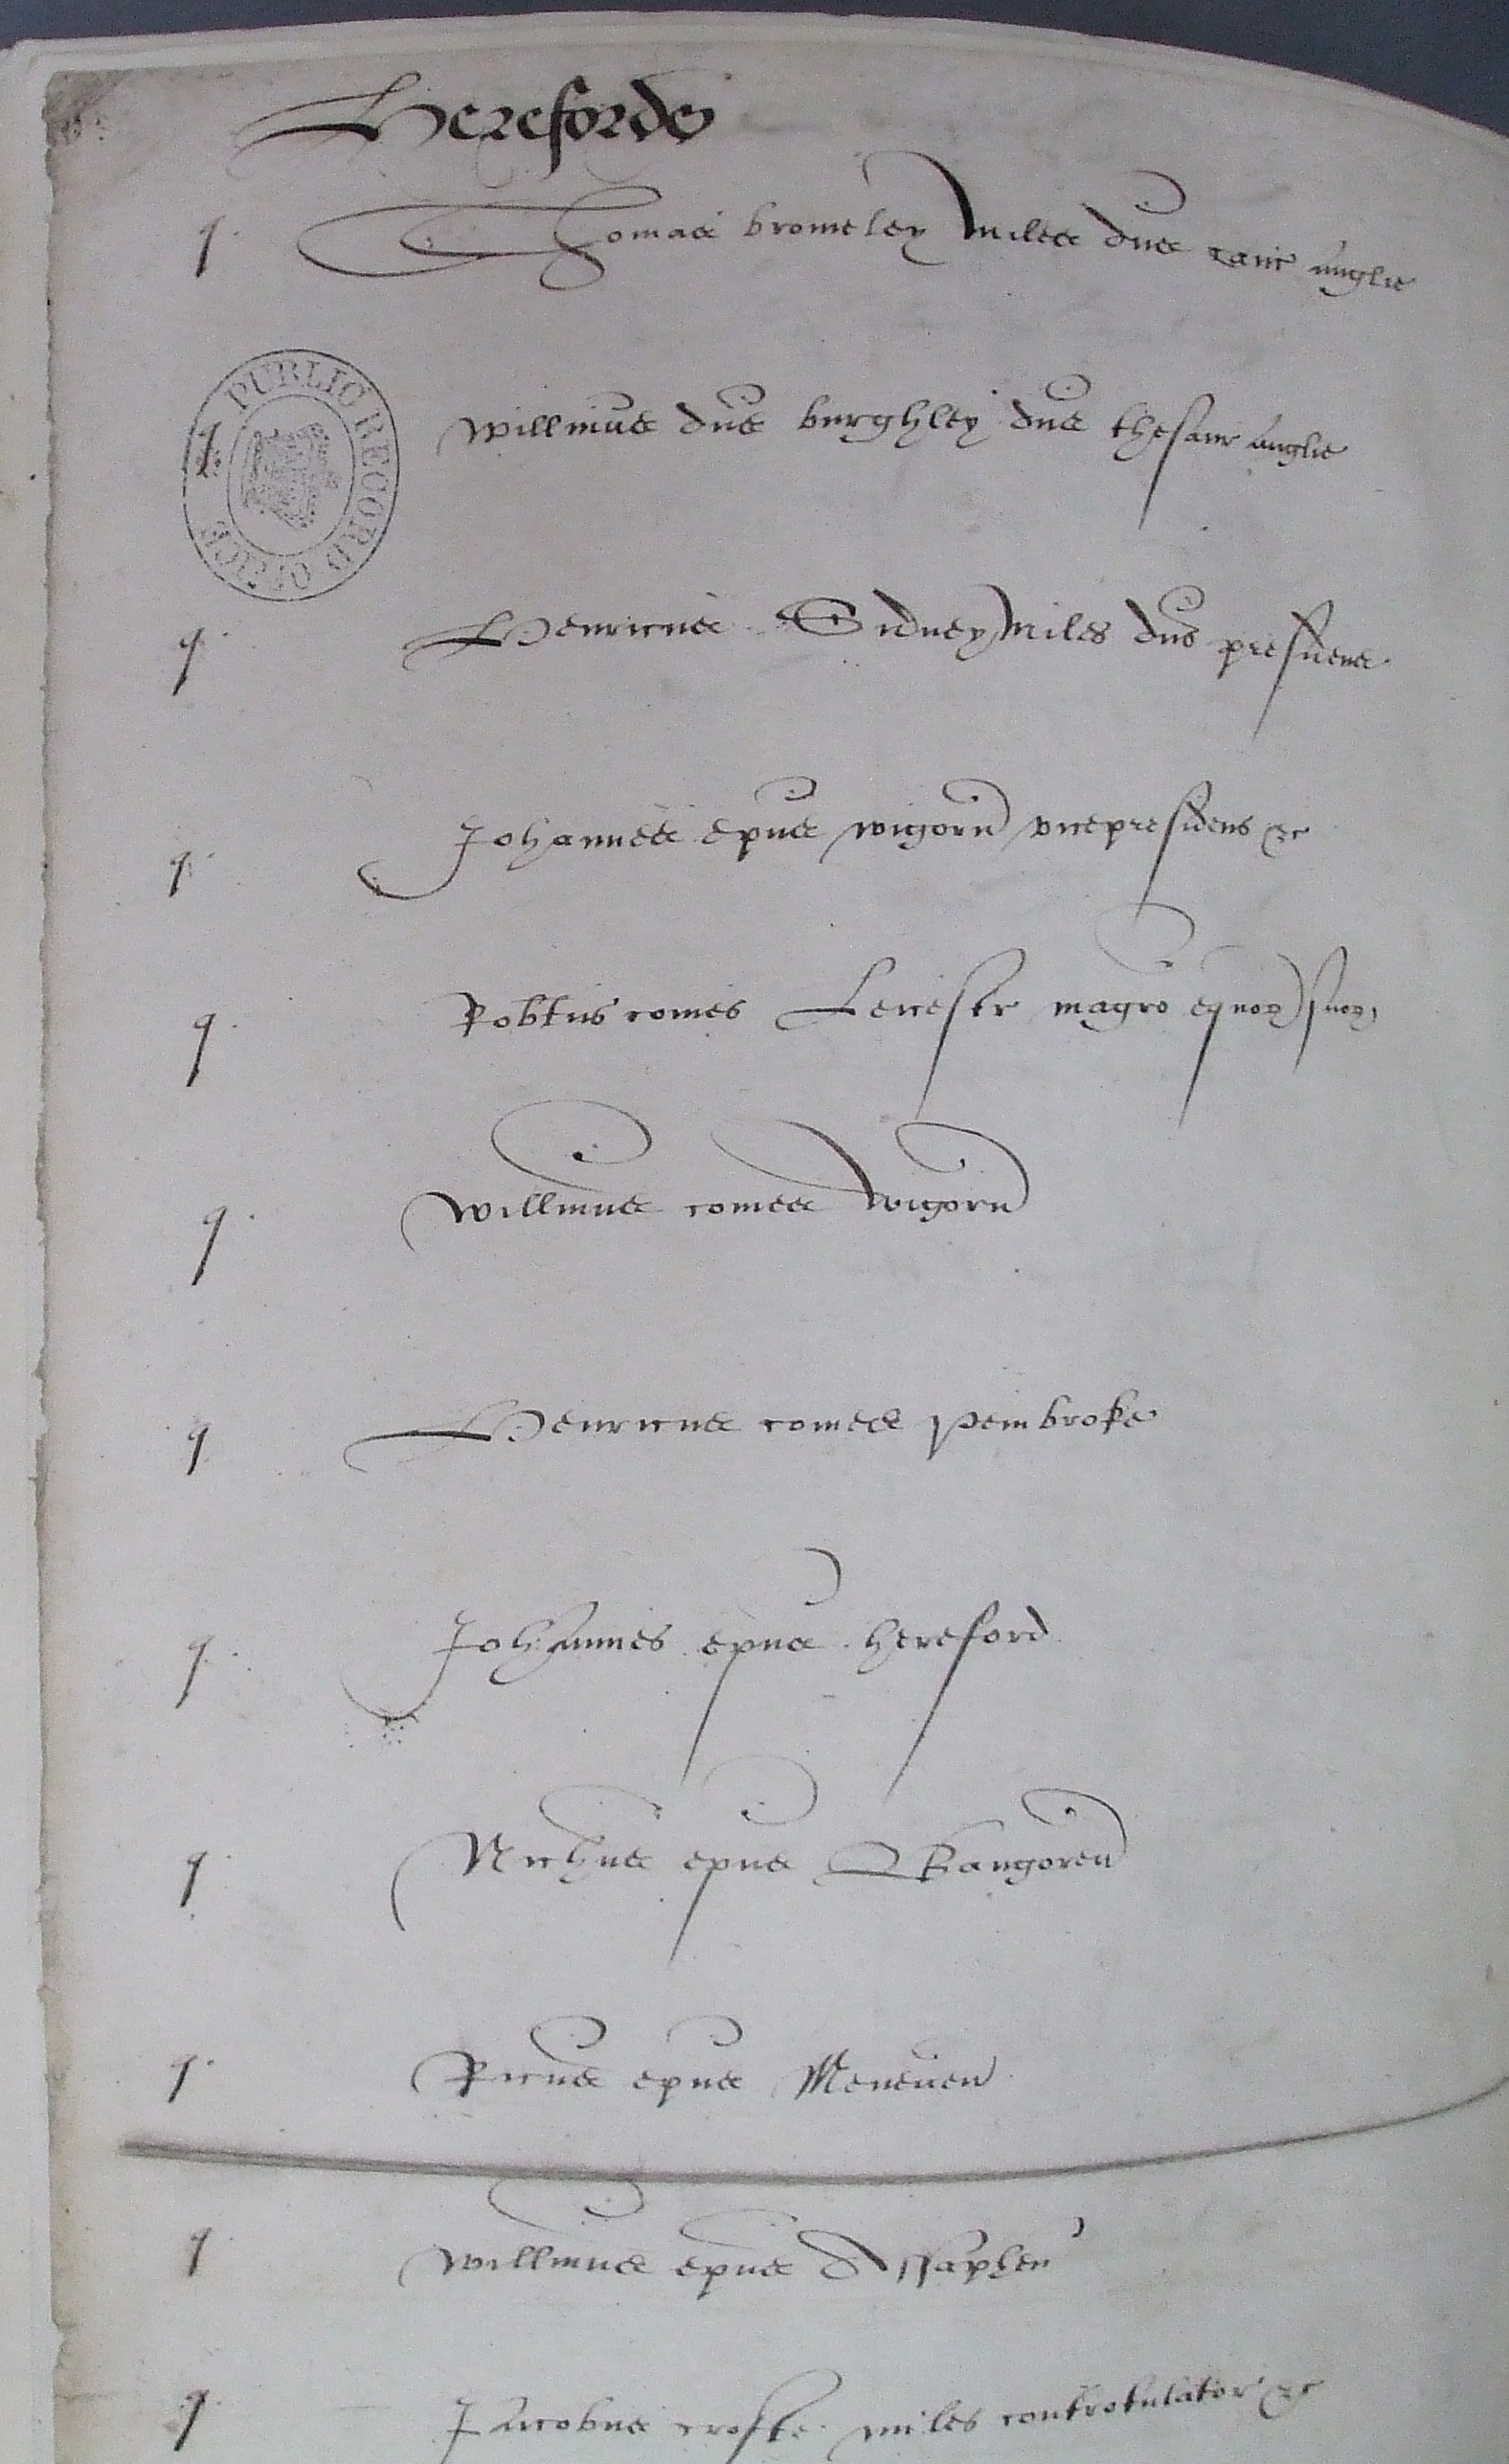 Hereforde
q Thomas bromeley miles dns canc anglie
PUBLIC RECORD OFFICE
q Willmus dns burghley dns thesaur anglie
q Henricus Sidney miles dns presidens
q Johannes epus wigorn vicepresidens &c
q Robtus comes Leicestr magro equor suor
q Willmus comes wigorn
q Henricus comes Pembroke
q Johannes epus hereford
q Nichus epus Bangoren
q Ricus epus Meneuen
q Willmus epus Assaphen
q Jacobus crofte miles controtulator &c